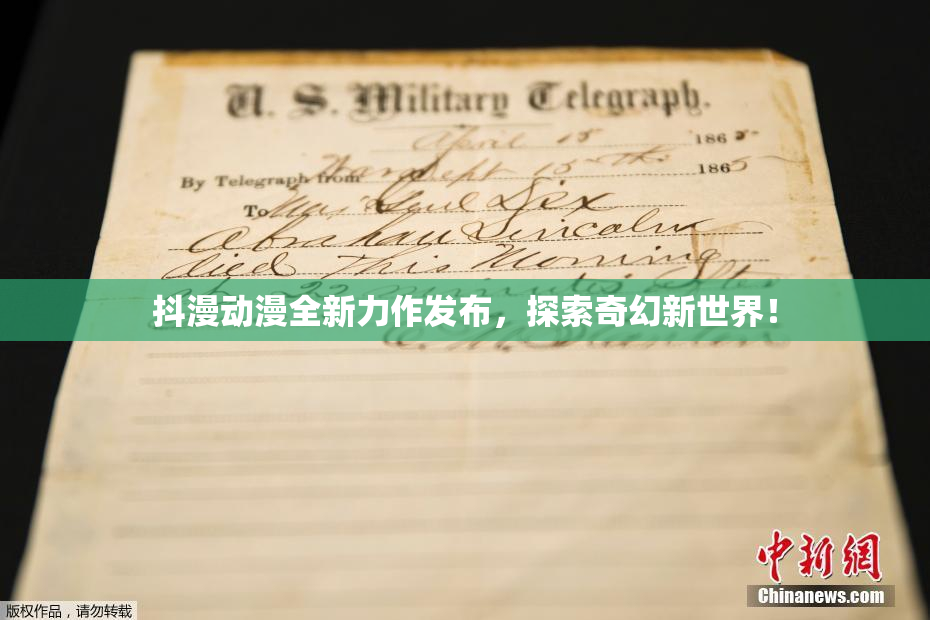 U. S. Military Telegraph.
April 15 1865
By Telegraph from War Dept 15th 1865
To Maj Genl Dix
Abraham Lincoln
died This Morning
at 22 minutes after
抖漫动漫全新力作发布，探索奇幻新世界！
E. M. Stanton
中新网
Chinanews.com
版权作品，请勿转载